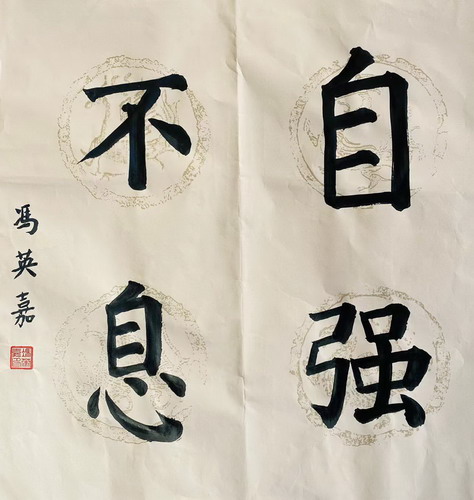 自强
不息
馮英嘉